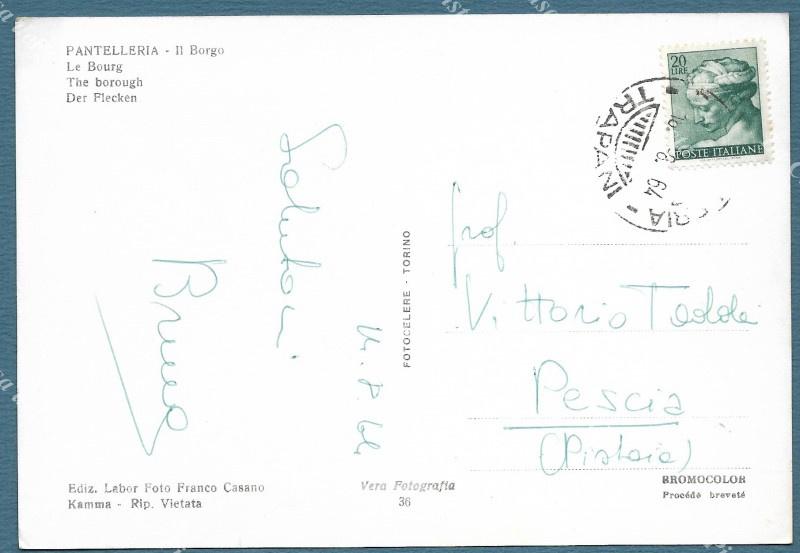 PANTELLERIA - Il Borgo
Le Bourg
The borough
Der Flecken
20
LIRE
POSTE ITALIANE
TRAPANI
64
Saluti
Bruno
14.8.64
FOTOCELERE - TORINO
Prof.
Vittorio Taddei
Pescia
(Pistoia)
Ediz. Labor Foto Franco Casano
Kamma - Rip. Vietata
Vera Fotografia
36
BROMOCOLOR
Procédé breveté